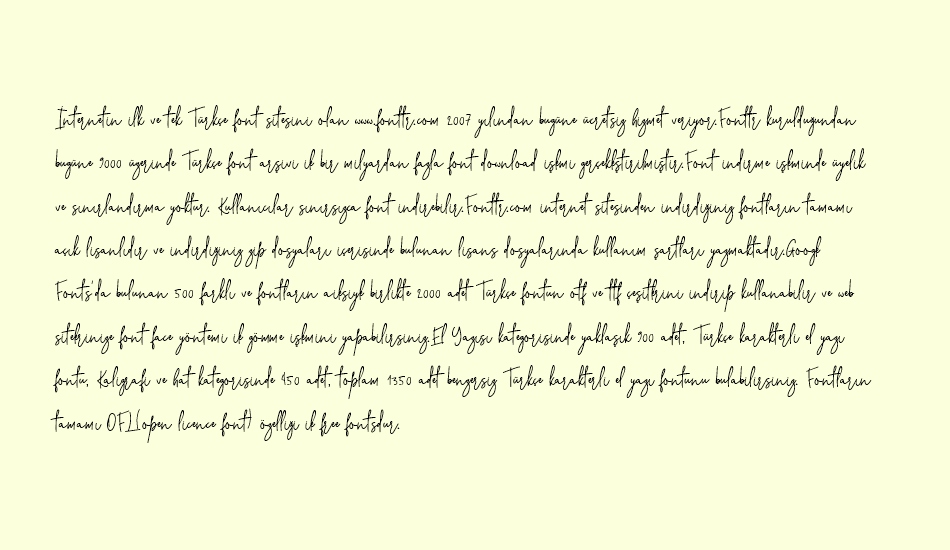 İnternetin ilk ve tek Türkçe font sitesini olan www.fonttr.com 2007 yılından bugüne ücretsiz hizmet veriyor.Fonttr kurulduğundan
bugüne 9000 üzerinde Türkçe font arşivi ile bir milyardan fazla font download işlemi gerçekleştirilmiştir.Font indirme işleminde üyelik
ve sınırlandırma yoktur. Kullanıcılar sınırsızca font indirebilir.Fonttr.com internet sitesinden indirdiğiniz fontların tamamı
açık lisanlıdır ve indirdiğiniz zip dosyaları içerisinde bulunan lisans dosyalarında kullanım şartları yazmaktadır.Google
Fonts'da bulunan 500 farklı ve fontların ailesiyle birlikte 2000 adet Türkçe fontun otf ve ttf çeşitlerini indirip kullanabilir ve web
sitelerinize font face yöntemi ile gömme işlemini yapabilirsiniz.El Yazısı kategorisinde yaklaşık 900 adet, Türkçe karakterli el yazı
fontu, Kaligrafi ve hat kategorisinde 450 adet, toplam 1350 adet benzersiz Türkçe karakterli el yazı fontunu bulabilirsiniz. Fontların
tamamı OFL(open licence font) özelliği ile free fontsdur.